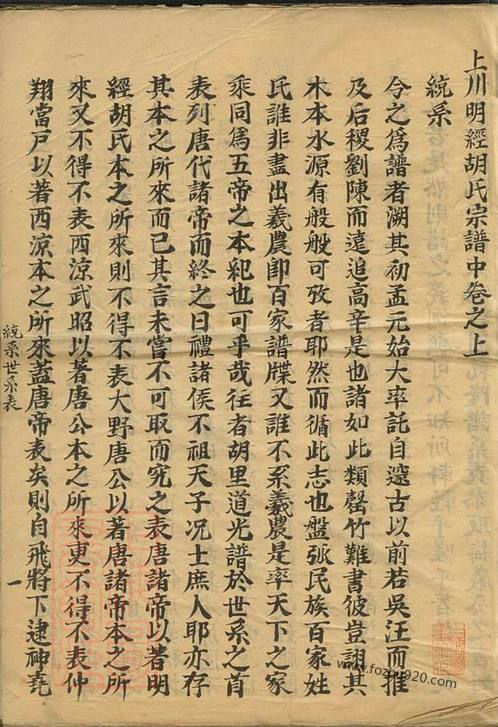 上川明經胡氏宗譜中卷之上
統系
今之為譜者溯其初孟元始大率託自邃古以前若吳汪而推
及后稷劉陳而遠追高辛是也諸如此類罄竹難書彼豈詡其
木本水源有般般可攷者耶然而循此志也盤瓠民族百家姓
氏誰非盡出羲農卽百家譜牒又誰不系羲農是率天下之家
乘同爲五帝之本紀也可乎哉往者胡里道光譜於世系之首
表列唐代諸帝而終之曰禮諸侯不祖天子況士庶人耶亦存
其本之所來而已其言未嘗不可取而究之表唐諸帝以著明
經胡氏本之所來則不得不表大野唐公以著唐諸帝本之所
來又不得不表西涼武昭以著唐公本之所來更不得不表仲
翔當戶以著西涼本之所來蓋唐帝表矣則自飛將下逮神堯
統系世系表
一
www.foz920920.com